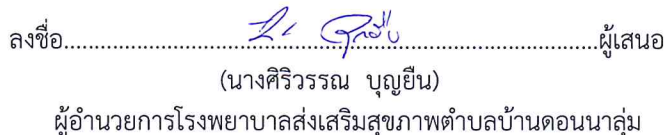 ลงชื่อ....................................................................................ผู้เสนอ
(นางศิริวรรณ บุญยืน)
ผู้อำนวยการโรงพยาบาลส่งเสริมสุขภาพตำบลบ้านดอนนาลุ่ม